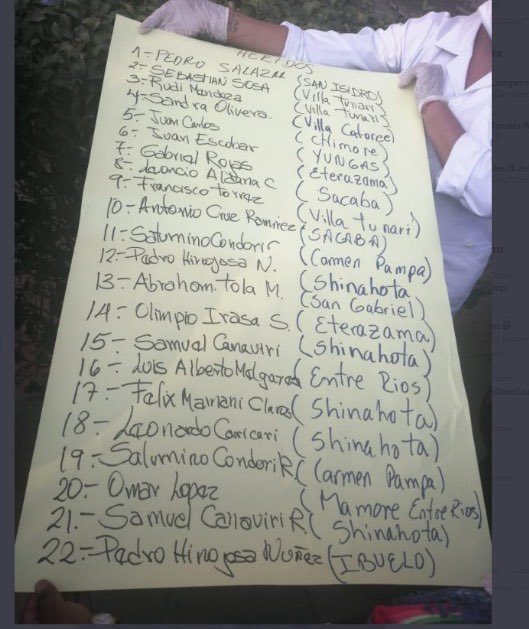 HERIDOS
1-- PEDRO SALAZAR (SAN ISIDRO)
2-- SEBASTIAN SOSA (Villa Tunari)
3-- Rudi Mendoza (Villa Tunari)
4- Sandra Olivera. (Villa Catorce)
5- Juan Carlos (CHimore)
6- Juan Escobar (YUNGAS)
7- Gabrial Rojas (Eterazama)
8- Leoncio Aldana C (Sacaba)
9- Francisco torrez (Villa tunari)
10- Antonio Cruz Ramirez (SACABA)
11- Saturnino Condorir (Carmen Pampa)
12- Padro Hinojosa N. (Shinahota
13- Abraham tola M. (San Gabriel)
14- Olimpio Irasa S. (Eterazama)
15- Samual Canaviri (Shinahota)
16- Luis Alberto Melgares (Entre Rios)
17- Falix Mamani Claros (Shinahota)
18- Leonardo Caricari (Shinahota)
19- Salumino Condori R (Carmen Pampa)
20-- Omar Lopez (Mamore Entre Rios)
21.- Samuel Canaviri R. (Shinahota)
22-- Padro Hinojosa Nuñez (IBUELO)